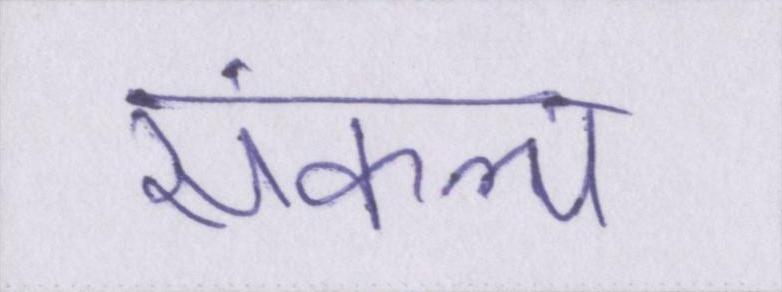 संकल्प